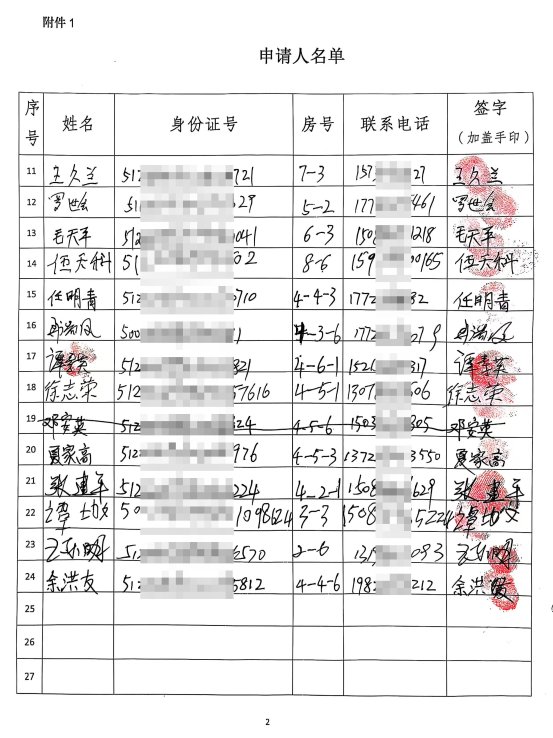 附件 1
申请人名单
序号 姓名 身份证号 房号 联系电话 签字（加盖手印）
11 王久兰 512 721 7-3 157 27 王久兰
12 罗世会 51 29 5-2 177 461 罗世会
13 毛天平 512 041 6-3 150 1218 毛天平
14 伍天科 51 02 8-6 159 00165 伍天科
15 任明青 512 0710 4-4-3 1772 32 任明青
16 500 1 4-3-6 1772 279
17 谭 英 512 321 4-6-1 152 317 谭 英
18 徐志荣 512 57616 4-5-1 1307 606 徐志荣
19 邓安英 512 324 4-5-6 1503 305 邓安英
20 夏家高 512 976 4-5-3 1372 3550 夏家高
21 张建平 512 224 4-2-1 1508 1629 张建平
22 谭 50 1098124 3-3 1508 15224 谭
23 王 明 51 6570 2-6 13 083 王 明
24 余洪友 512 5812 4-4-6 198 212 余洪友
25
26
27
2